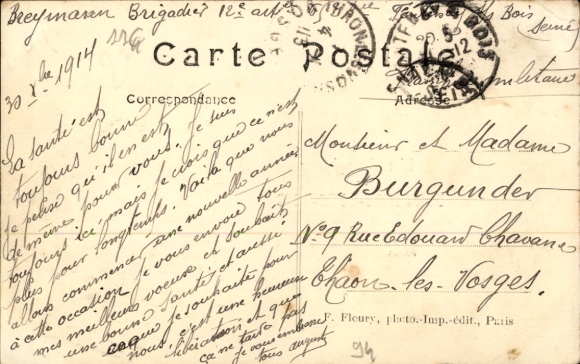 Breymasen Brigadier 12e
Carte Postale
militaire
Correspondance
Adresse
30 Xbre 1914
La santé est
toujours bonne
je pense qu'il en est
de même pour vous. Je suis
toujours ici, mais je crois que ce n'est
plus pour longtemps. Voilà que nous
allons commencer une nouvelle année
à cette occasion je vous envoie tous
mes meilleurs voeux et souhaits
une bonne santé, et aussi
ce que je souhaite pour
nous, c'est une heureuse
libération et que
ça ne tarde pas
je vous embrasse
tous auguste
Monsieur et Madame
Burgunder
No 9 Rue Edouard Chavane
Thaon-les-Vosges.
F. Fleury, photo.-Imp.-édit., Paris
94